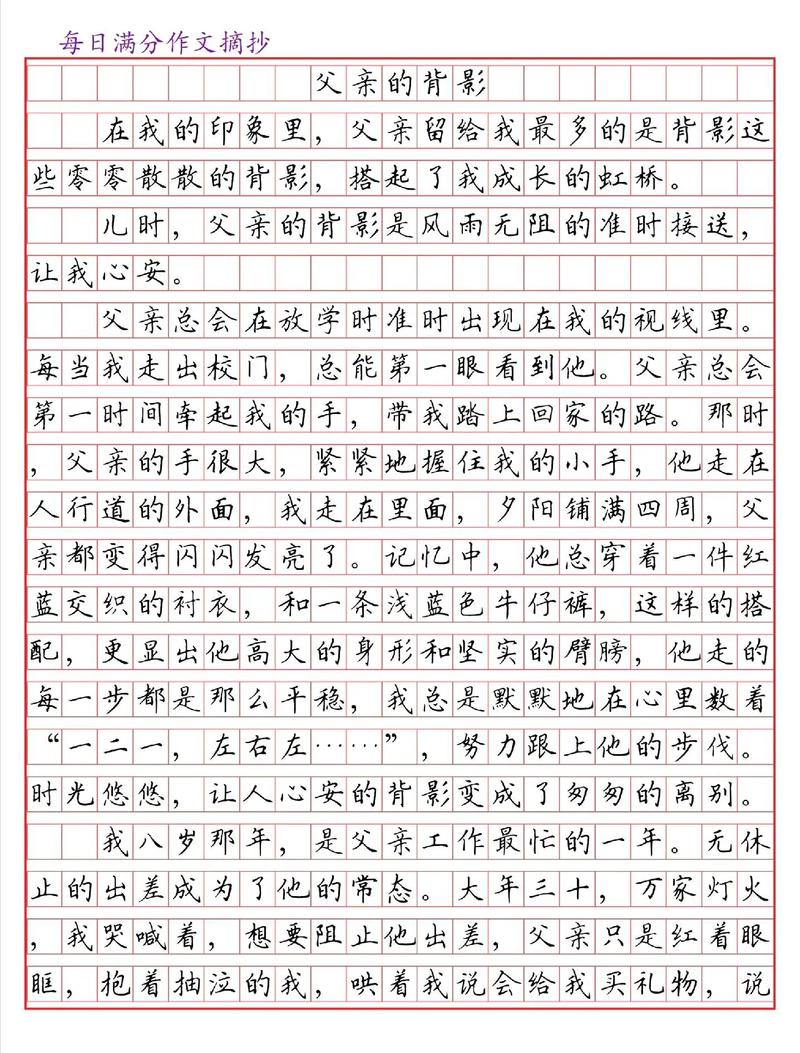 每日满分作文摘抄
父亲的背影
在我的印象里，父亲留给我最多的是背影这
些零零散散的背影，搭起了我成长的虹桥。
儿时，父亲的背影是风雨无阻的准时接送，
让我心安。
父亲总会在放学时准时出现在我的视线里。
每当我走出校门，总能第一眼看到他。父亲总会
第一时间牵起我的手，带我踏上回家的路。那时
，父亲的手很大，紧紧地握住我的小手，他走在
人行道的外面，我走在里面，夕阳铺满四周，父
亲都变得闪闪发亮了。记忆中，他总穿着一件红
蓝交织的衬衣，和一条浅蓝色牛仔裤，这样的搭
配，更显出他高大的身形和坚实的臂膀，他走的
每一步都是那么平稳，我总是默默地在心里数着
“一二一，左右左……”，努力跟上他的步伐。
时光悠悠，让人心安的背影变成了匆匆的离别。
我八岁那年，是父亲工作最忙的一年。无休
止的出差成为了他的常态。大年三十，万家灯火
，我哭喊着，想要阻止他出差，父亲只是红着眼
眶，抱着抽泣的我，哄着我说会给我买礼物，说